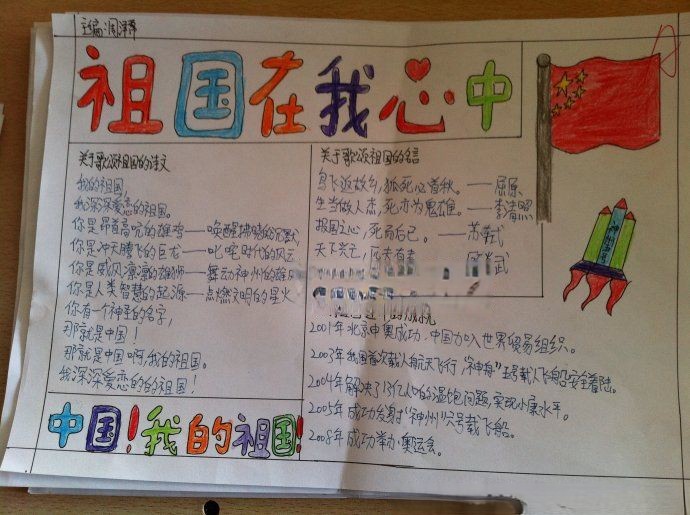 主编:周泽霖
祖国在我心中
关于歌颂祖国的诗文
我的祖国,
我深深爱恋的祖国。
你是昂首高吭的雄鸡——唤醒拂晓的沉默
你是冲天腾飞的巨龙——叱咤时代的风云
你是威风凛凛的雄狮——舞动神州的雄风
你是人类智慧的起源——点燃文明的星火
你有一个神圣的名字,
那就是中国!
那就是中国啊,我的祖国。
我深深爱恋的的祖国!
中国!我的祖国!
关于歌颂祖国的名言
鸟飞返故乡,狐死必首秋。——屈原
生当做人杰,死亦为鬼雄。——李清照
报国之心,死而后已。——苏轼
天下兴亡,匹夫有责
神州5号
2001年北京申奥成功,中国加入世界贸易组织。
2003年我国首次载人航天飞行,"神舟"五号载人飞船安全着陆。
2004年解决了13亿人口的温饱问题,实现小康水平。
2005年成功发射"神州"六号载飞船。
2008年成功举办奥运会。